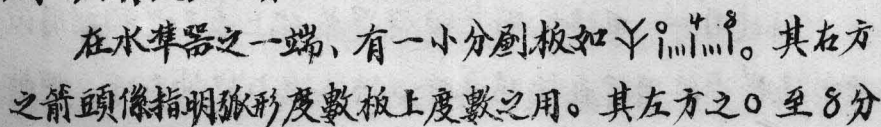 在水準器之一端、有一小分劃板如 0 4 8。其右方
之箭頭係指明弧形度數板上度數之用。其左方之0至8分